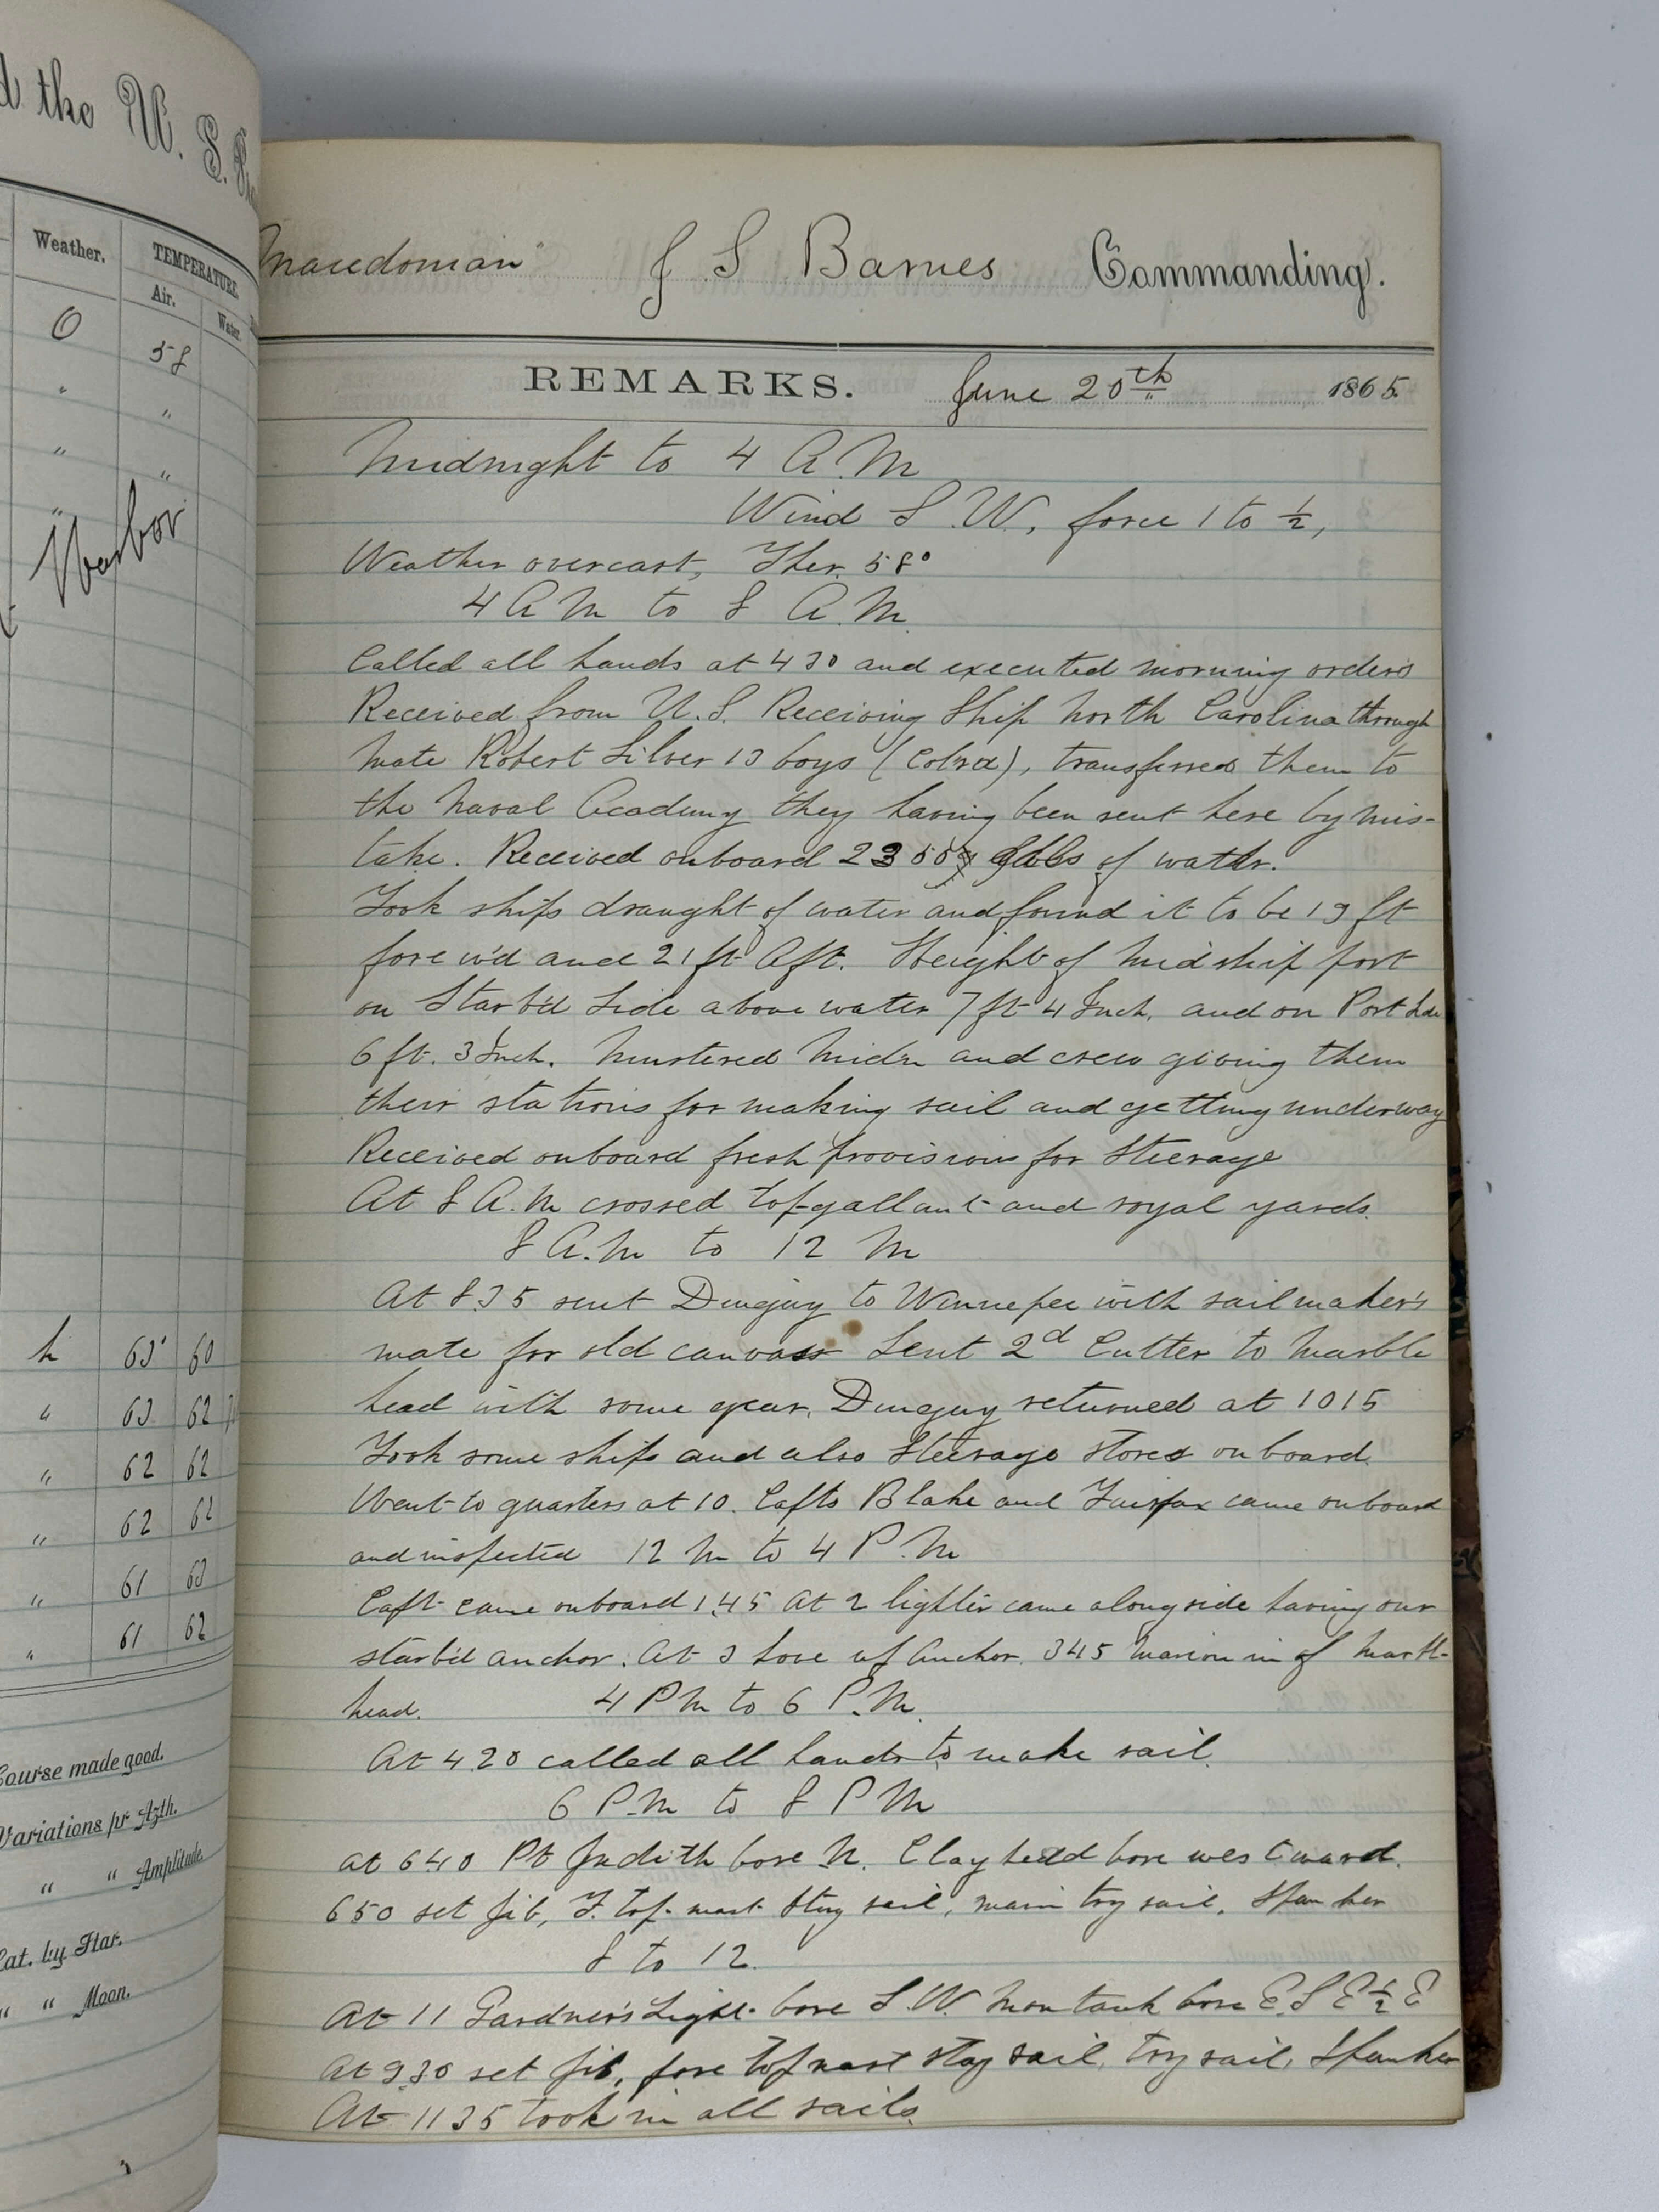 d the U. S. S
Weather.
TEMPERATURE
Air.
Water.
O
58
"
"
"
"
"
Harbor
h 63° 60
" 63 62
" 62 62
" 62 62
" 61 63
" 61 62
Course made good.
Variations pr Azth.
" " Amplitude
Lat. by Star.
" " Moon.
Macedonian" J S Barnes Commanding.
REMARKS. June 20th 1865.
Midnight to 4 A.M
Wind S.W., force 1 to ½,
Weather overcast, Ther. 58°
4 A M to 8 A.M.
Called all hands at 4 30 and executed morning orders
Received from U.S. Receiving Ship North Carolina through
Mate Robert Silver 13 boys (Cold), transferred them to
the Naval Academy they having been sent here by mis-
take. Received onboard 2300 galls of water.
Took ships draught of water and found it to be 19 ft
forew'd and 21 ft Aft. Height of Midship port
on Starb'd Side above water 7 ft 4 Inch. and on Port Side
6 ft. 3 Inch. Mustered Midn and crew giving them
their stations for making sail and getting underway
Received onboard fresh provisions for Steerage
At 8 A.M crossed top-gallant and royal yards.
8 A.M to 12 M
At 8.35 sent Dinguy to Winnepec with sailmaker's
mate for old canvass Sent 2d Cutter to Marble
head with some gear, Dinguy returned at 10 15
Took some ships and also Steerage stores onboard.
Went to quarters at 10. Capts Blake and Fairfax came onboard
and inspected 12 M to 4 P.M
Capt came onboard 1.45 At 2 lighter came alongside having our
starb'd anchor. At 3 hove up Anchor. 3 45 Marion in of Marble-
head. 4 P M to 6 P.M.
At 4 20 called all hands to make sail.
6 P.M to 8 P M
At 6 40 Pt Judith bore N. Clay head bore westward.
6 50 set jib, F. top-mast Stay sail, main try sail, Spanker
8 to 12.
At 11 Gardner's Light bore S.W. Montauk bore E S E ½ E
At 9.30 set jib, fore topmast stay sail, try sail, Spanker
At 11 35 took in all sails.